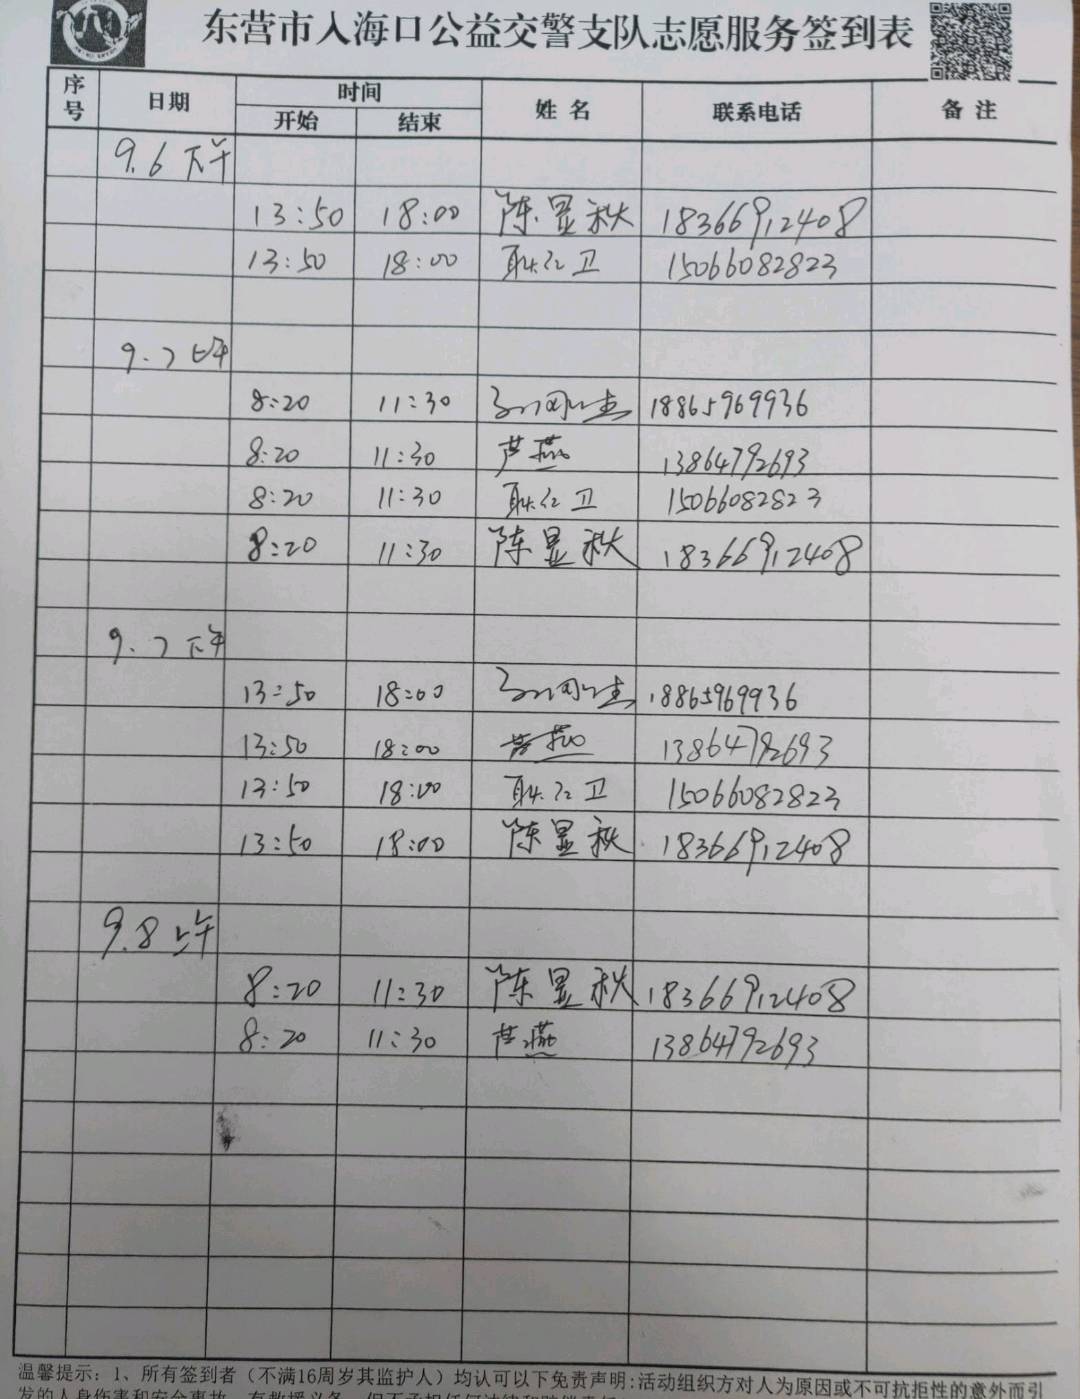 东营市入海口公益交警支队志愿服务签到表
序号 日期 时间 姓名 联系电话 备注
开始 结束
9.6 下午
13:50 18:00 陈显秋 18366912408
13:50 18:00 耿红卫 15066082823
9.7 上午
8:20 11:30 18865969936
8:20 11:30 芦燕 13864792693
8:20 11:30 耿红卫 15066082823
8:20 11:30 陈显秋 18366912408
9.7 下午
13:50 18:00 18865969936
13:50 18:00 芦燕 13864792693
13:50 18:00 耿红卫 15066082823
13:50 18:00 陈显秋 18366912408
9.8 上午
8:20 11:30 陈显秋 18366912408
8:20 11:30 芦燕 13864792693
温馨提示：1、所有签到者（不满16周岁其监护人）均认可以下免责声明:活动组织方对人为原因或不可抗拒性的意外而引
发的人身伤害和安全事故，有救援义务，但不承担任何法律和赔偿责任